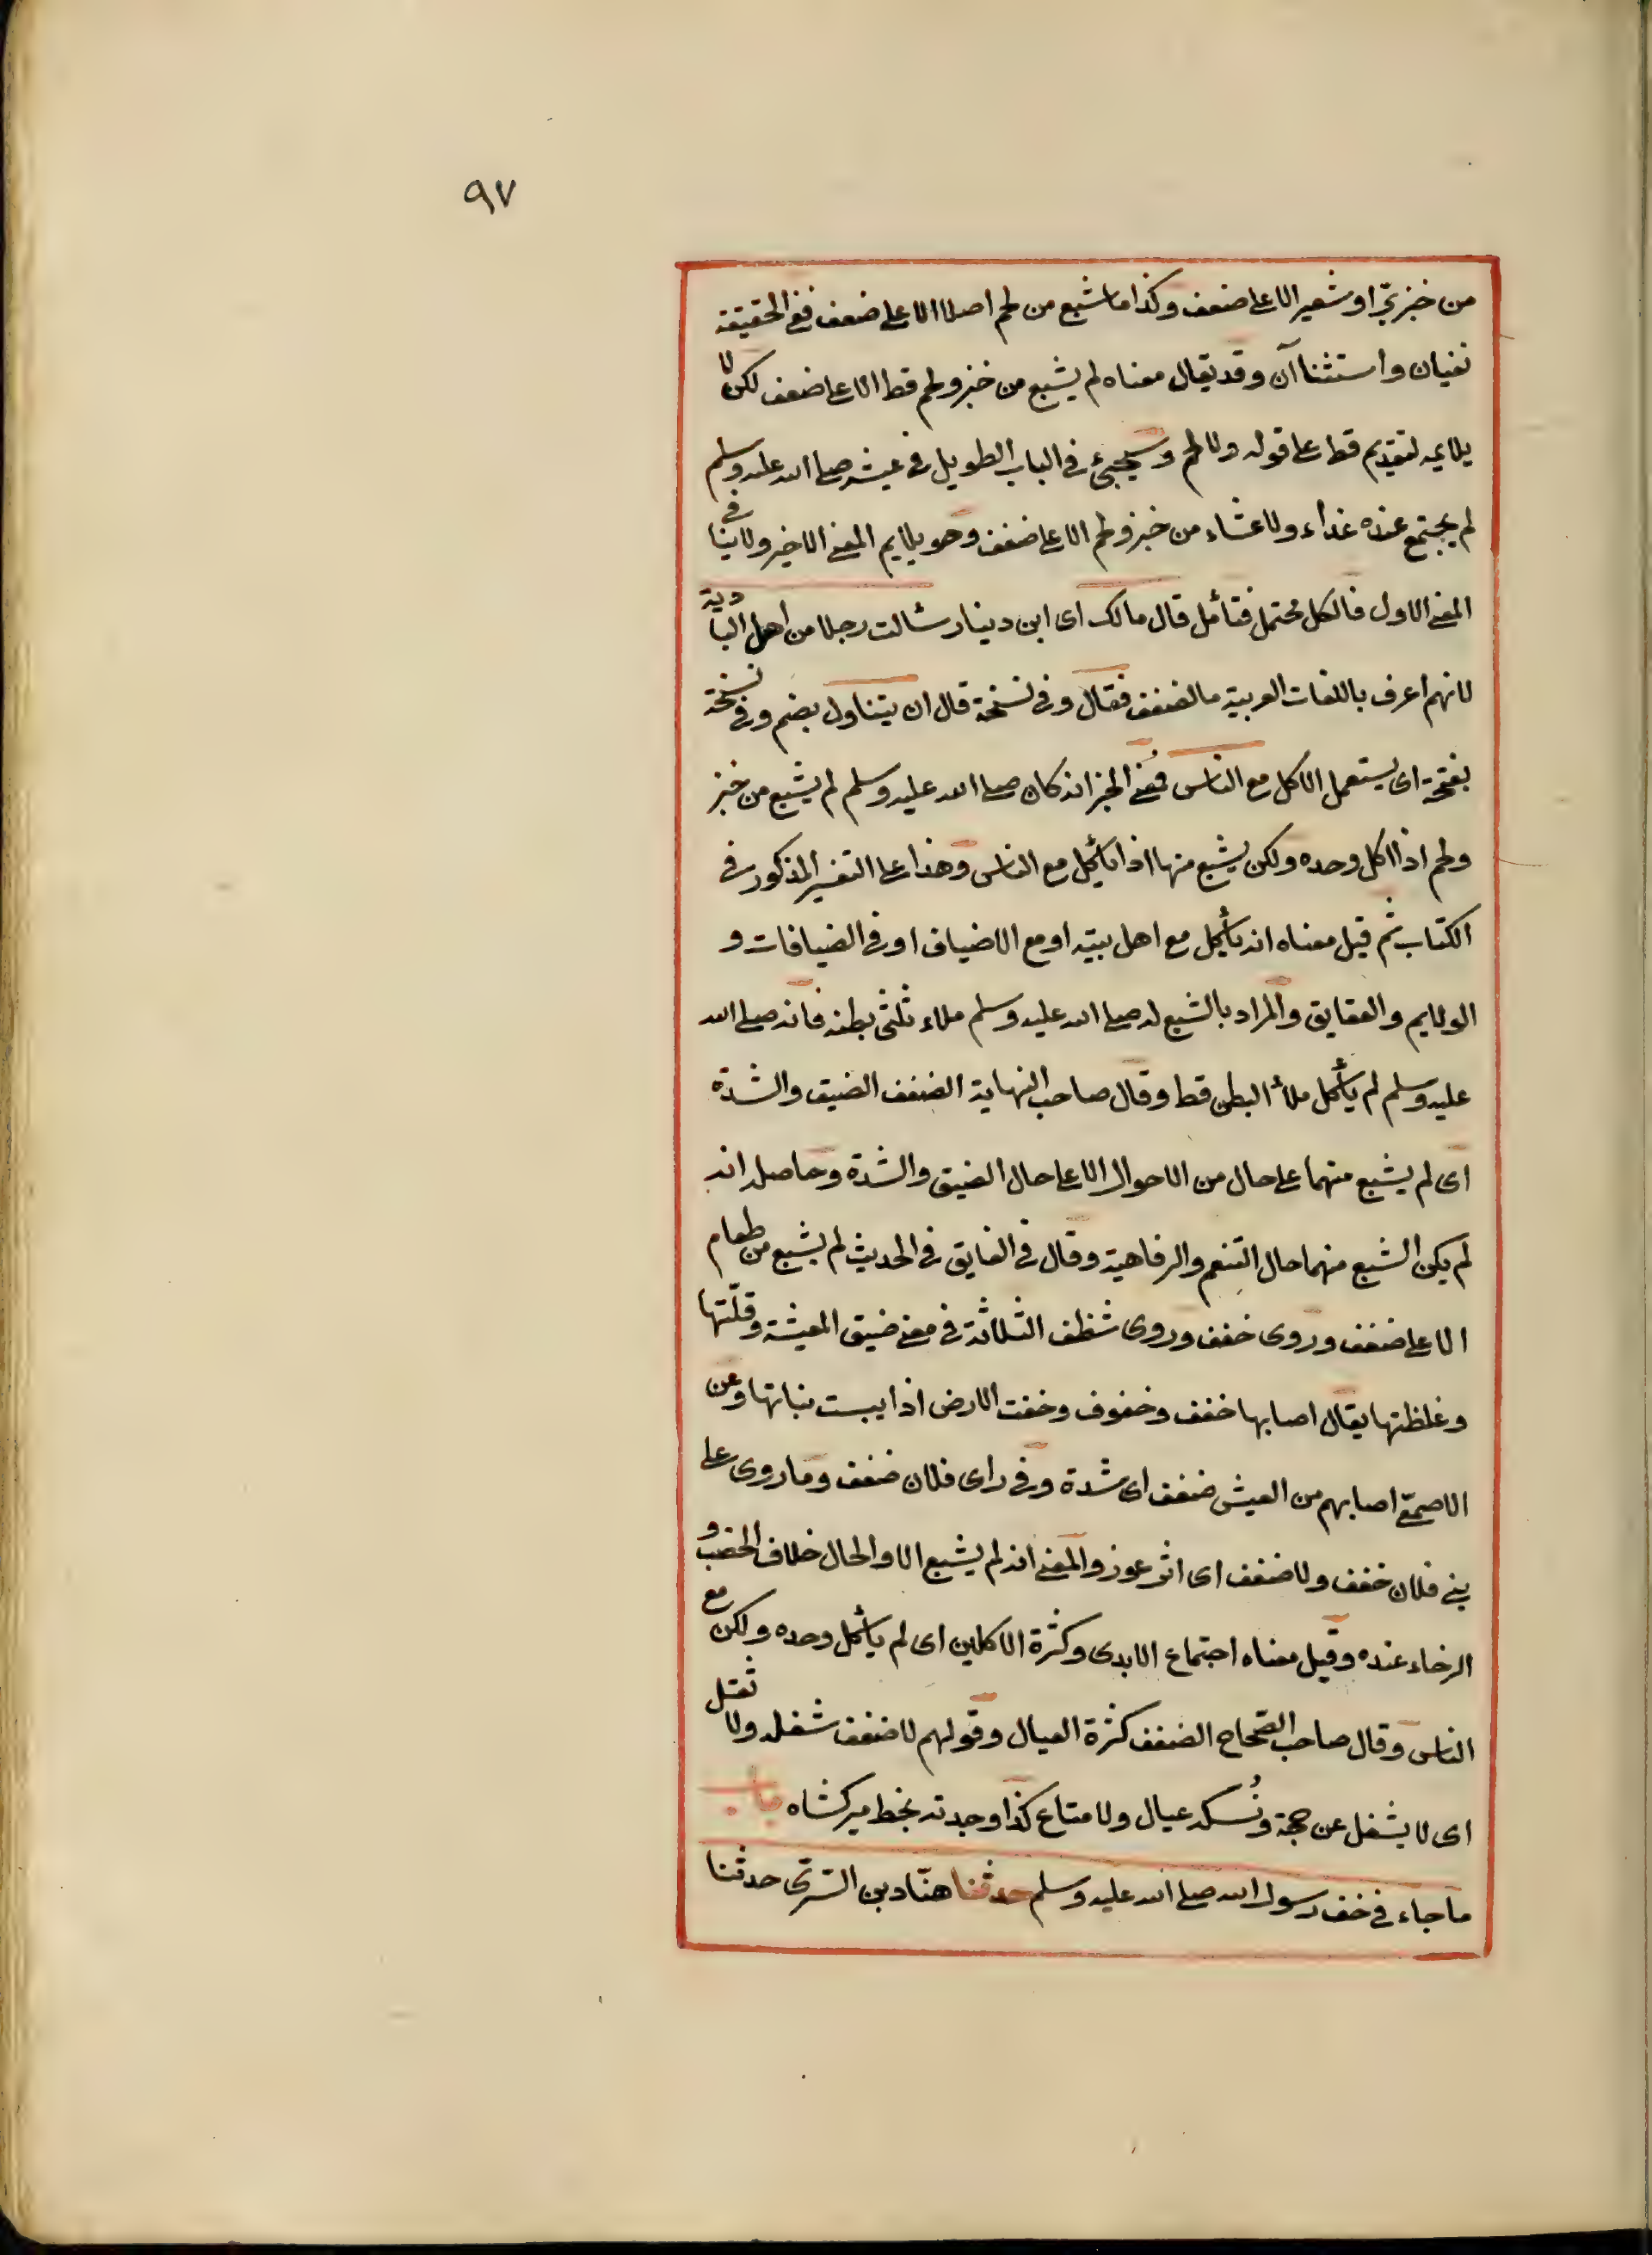 ٩٧
من خبز برّ او شعير الا على ضفف وكذا ما شبع من لحم اصلا الا على ضفف ففي الحقيقة
نفيان واستثناآن وقد يقال معناه لم يشبع من خبز ولحم قط الا على ضفف لكن لا
يلايمه تقديم قط على قوله ولا لحم وسيجيئ في الباب الطويل في عيشه صلى الله عليه وسلم
لم يجتمع عنده غداء ولا عشاء من خبز ولحم الا على ضفف وهو يلايم المعنى الاخير ولا ينافي
المعنى الاول فالكل محتمل فتأمل قال مالك اى ابن دينار سئالت رجلا من اهل البادية
لانهم اعرف باللغات العربية ما الضفف فقال وفي نسخة قال ان يتناول بضم وفي نسخة
بفتحة اى يستعمل الاكل مع الناس فمعنى الخبر انه كان صلى الله عليه وسلم لم يشبع من خبز
ولحم اذا اكل وحده ولكن يشبع منها اذا يأكل مع الناس وهذا على التفسير المذكور في
الكتاب ثم قيل معناه انه يأكل مع اهل بيته او مع الاضياف او في الضيافات و
الولايم والعقايق والمراد بالشبع له صلى الله عليه وسلم ملاء ثلثى بطنه فانه صلى الله
عليه وسلم لم يأكل ملأ البطن قط وقال صاحب النهاية الضفف الضيق والشدة
اى لم يشبع منهما على حال من الاحوال الا على حال الضيق والشدة وحاصله انه
لم يكن الشبع منهما حال التنعم والرفاهية وقال في الفايق في الحديث لم يشبع من طعام
الا على ضفف وروى حفف وروى شظف الثلاثة في معنى ضيق المعيشة وقلّتها
وغلظتها يقال اصابها حفف وحفوف وحفت الارض اذا يبست نباتها وعن
الاصمعّى اصابهم من العيش ضفف اى شدة وفي راى فلان ضفف وما روى على
بنى فلان حفف ولا ضفف اى اثر عوز والمعنى انه لم يشبع الا والحال خلاف الخصب و
الرخاء عنده وقيل معناه اجتماع الايدى وكثرة الاكلين اى لم يأكل وحده ولكن مع
الناس وقال صاحب الصّحاح الضفف كثرة العيال وقولهم لا ضفف شغله ولا ثقل
اى لا يشغل عن حجة ونُسكه عيال ولا متاع كذا وجدته بخط ميركشاه باب
ما جاء في خف رسول الله صلى الله عليه وسلم حدثنا هنّاد بن السّرىّ حدثنا